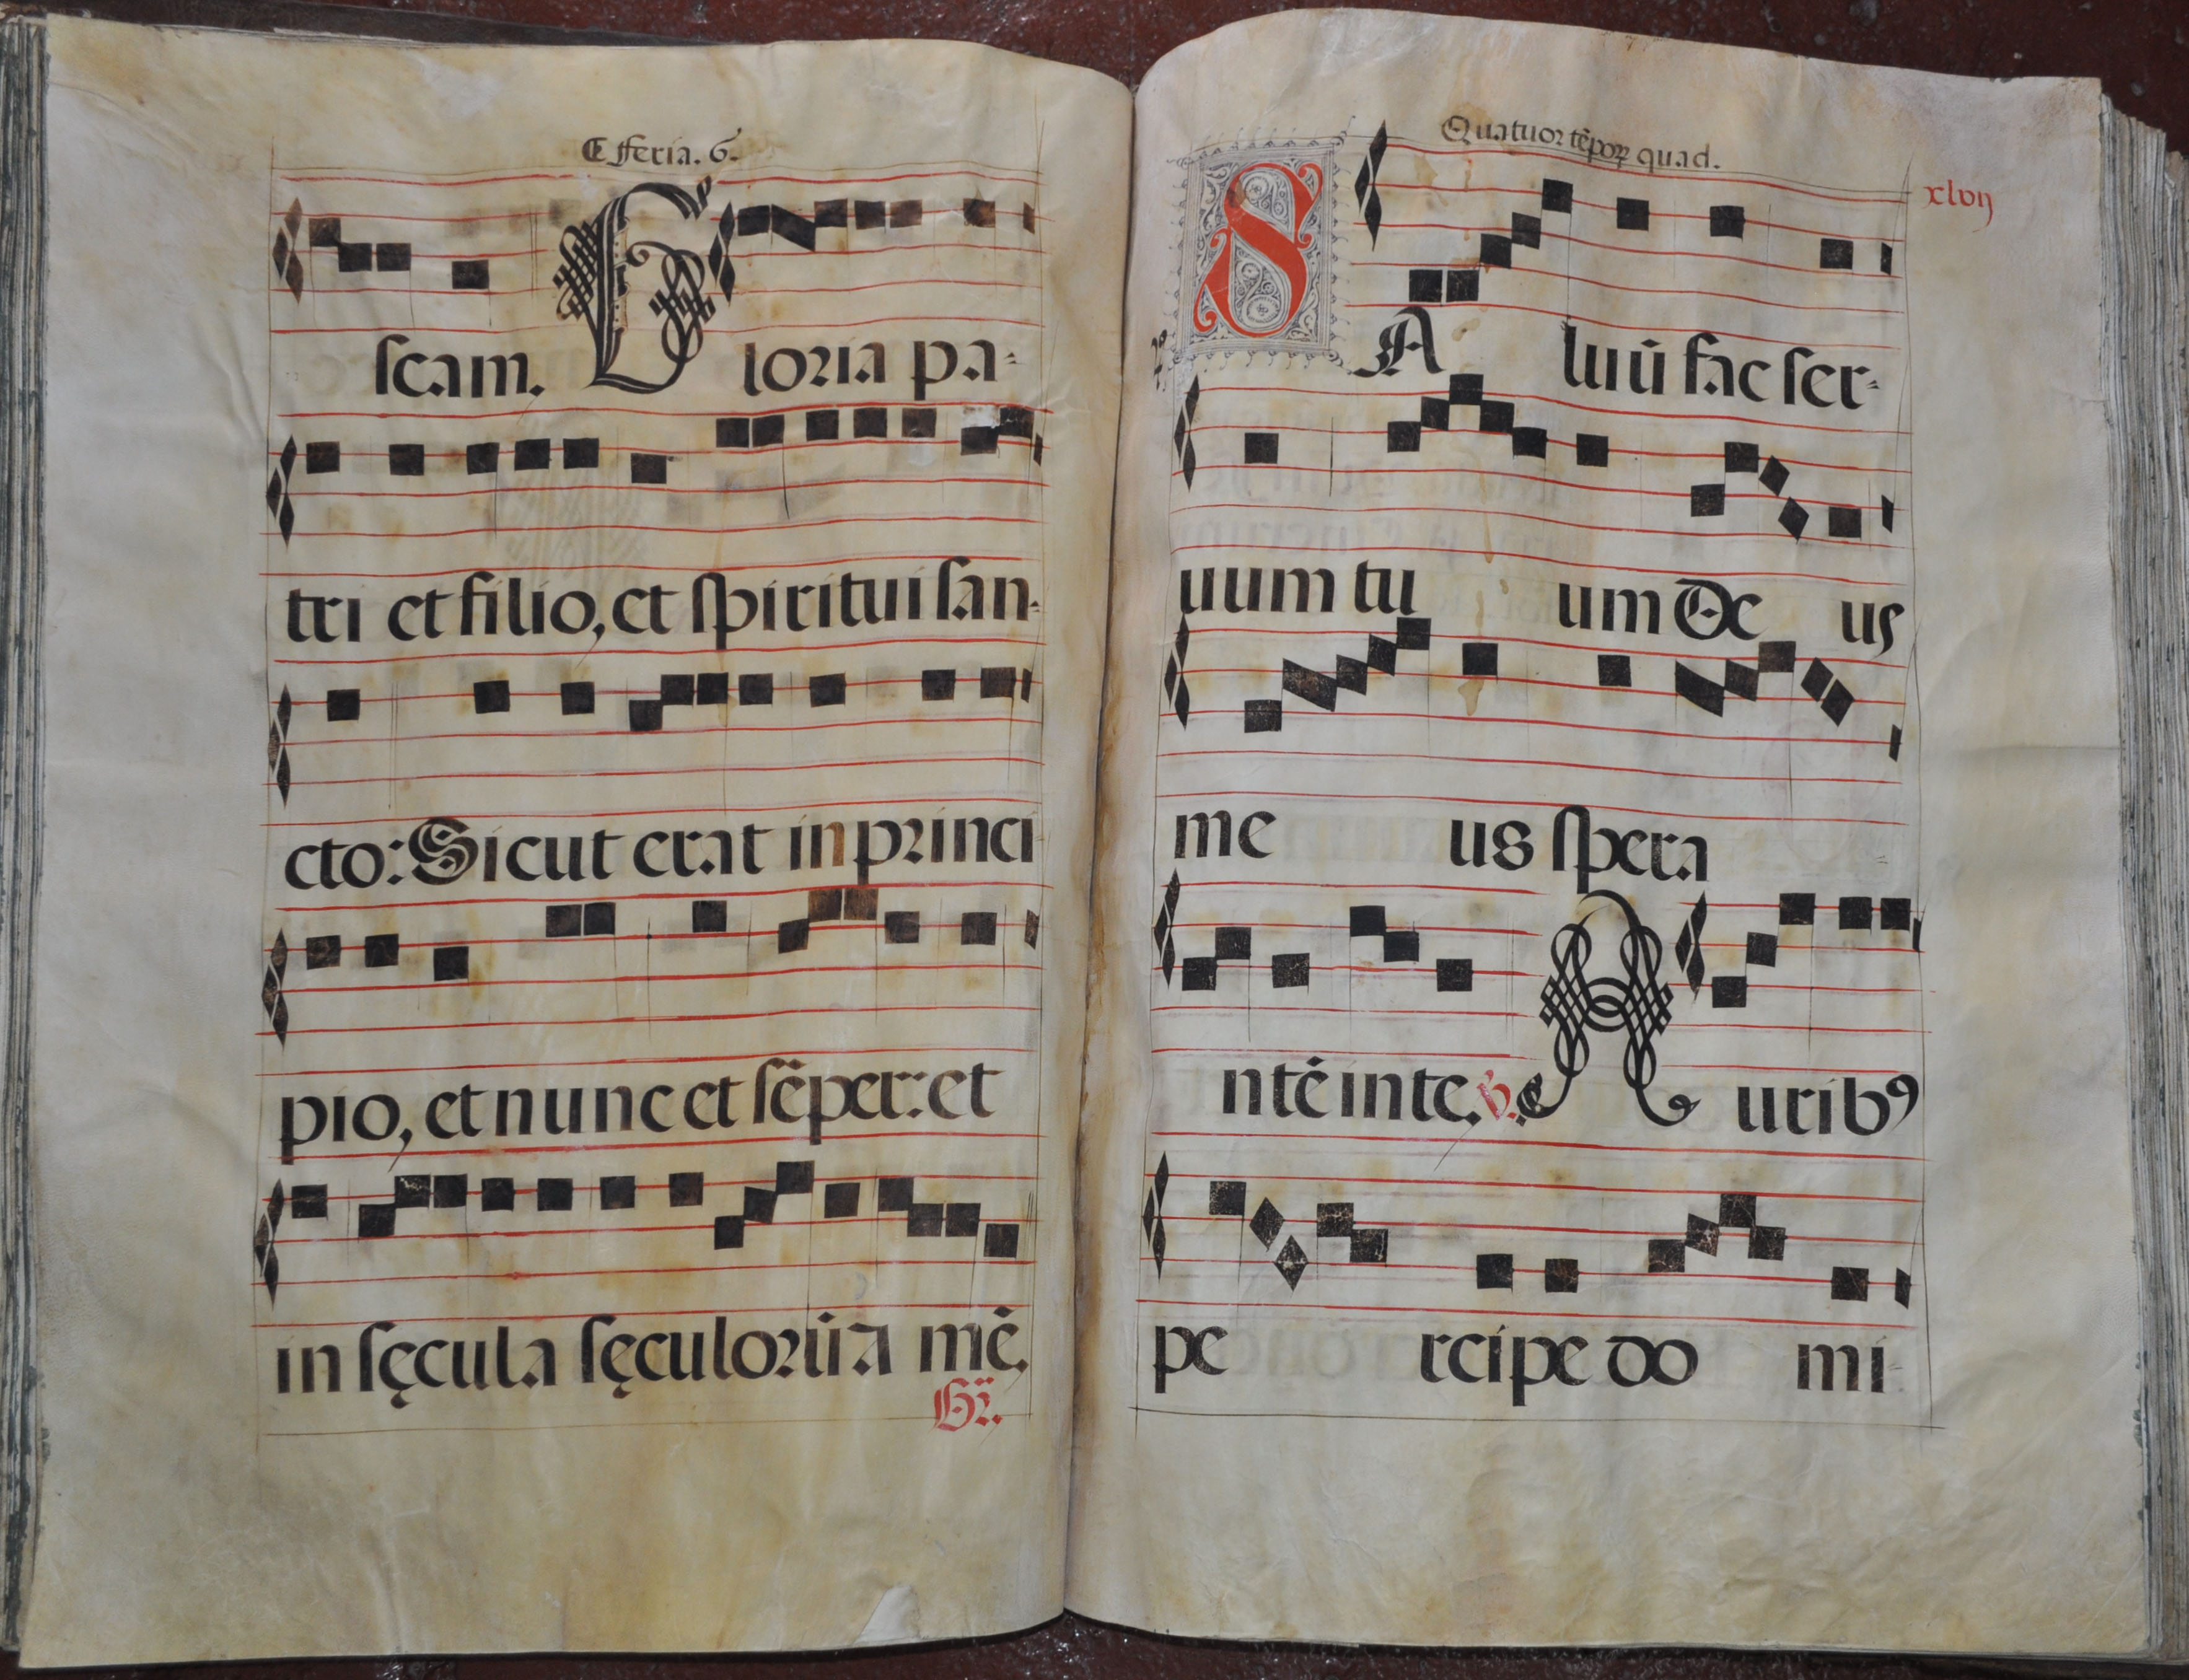 Feria. 6.
scam. Gloria pa-
tri et filio, et spiritui san-
cto: Sicut erat in princi
pio, et nunc et sẽper: et
in sęcula sęculorũ a mẽ.
Gr̃.
Quatuor tẽpoꝝ quad.
xlvij
SA luũ fac ser-
uum tu um De us
me us spera
ntẽ in te. ℣. Auribꝰ
pe rcipe do mi-